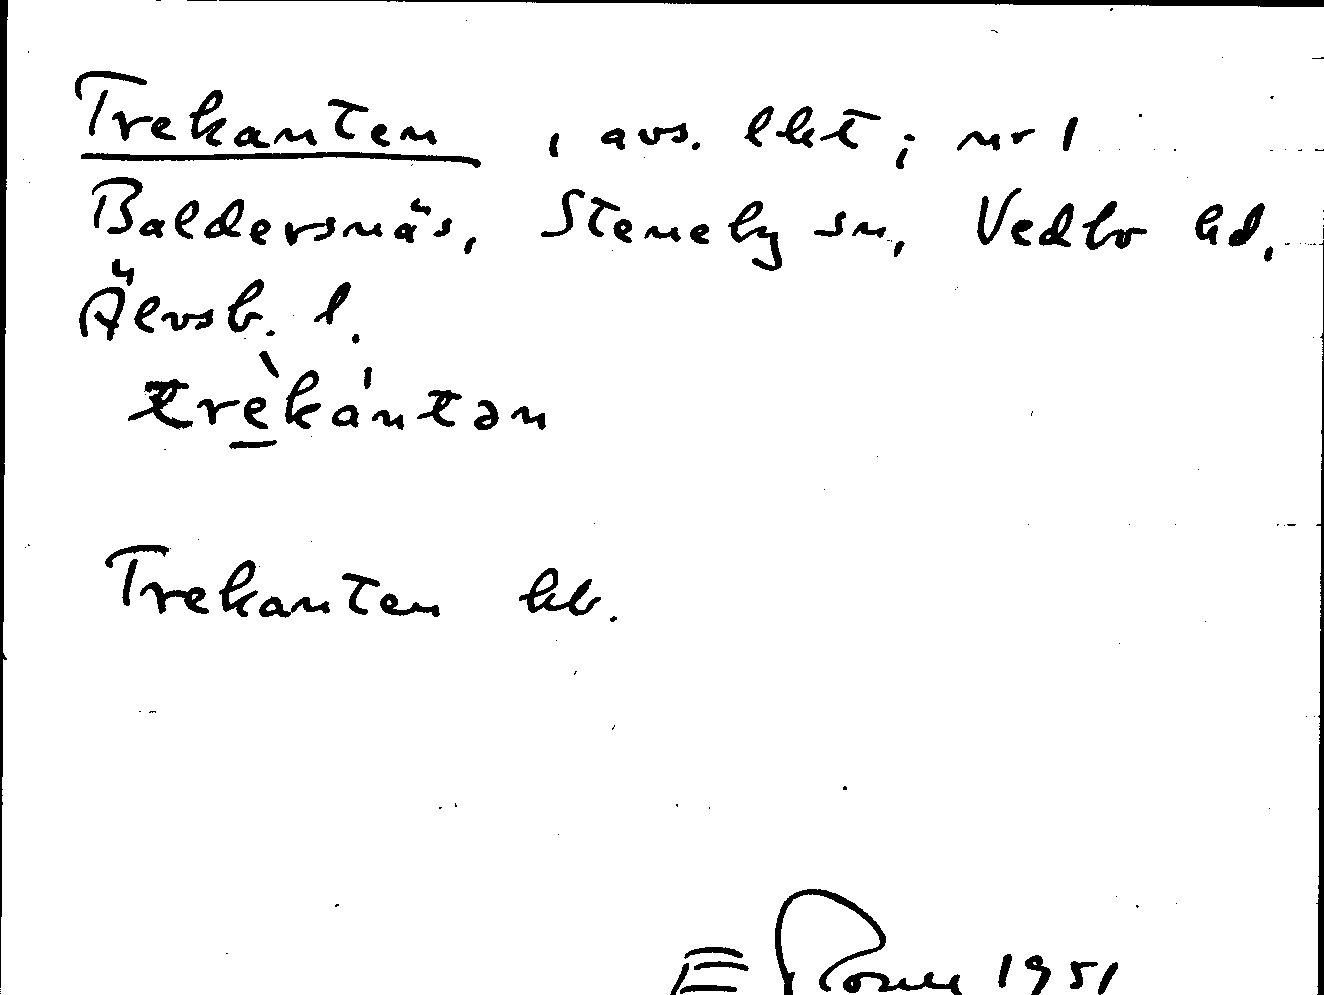 Trekanten, avs. lht; nr 1
Baldersnäs, Steneby sn, Vedbo hd,
Älvsb. l.
trèkántən
Trekanten kb.
E 1951